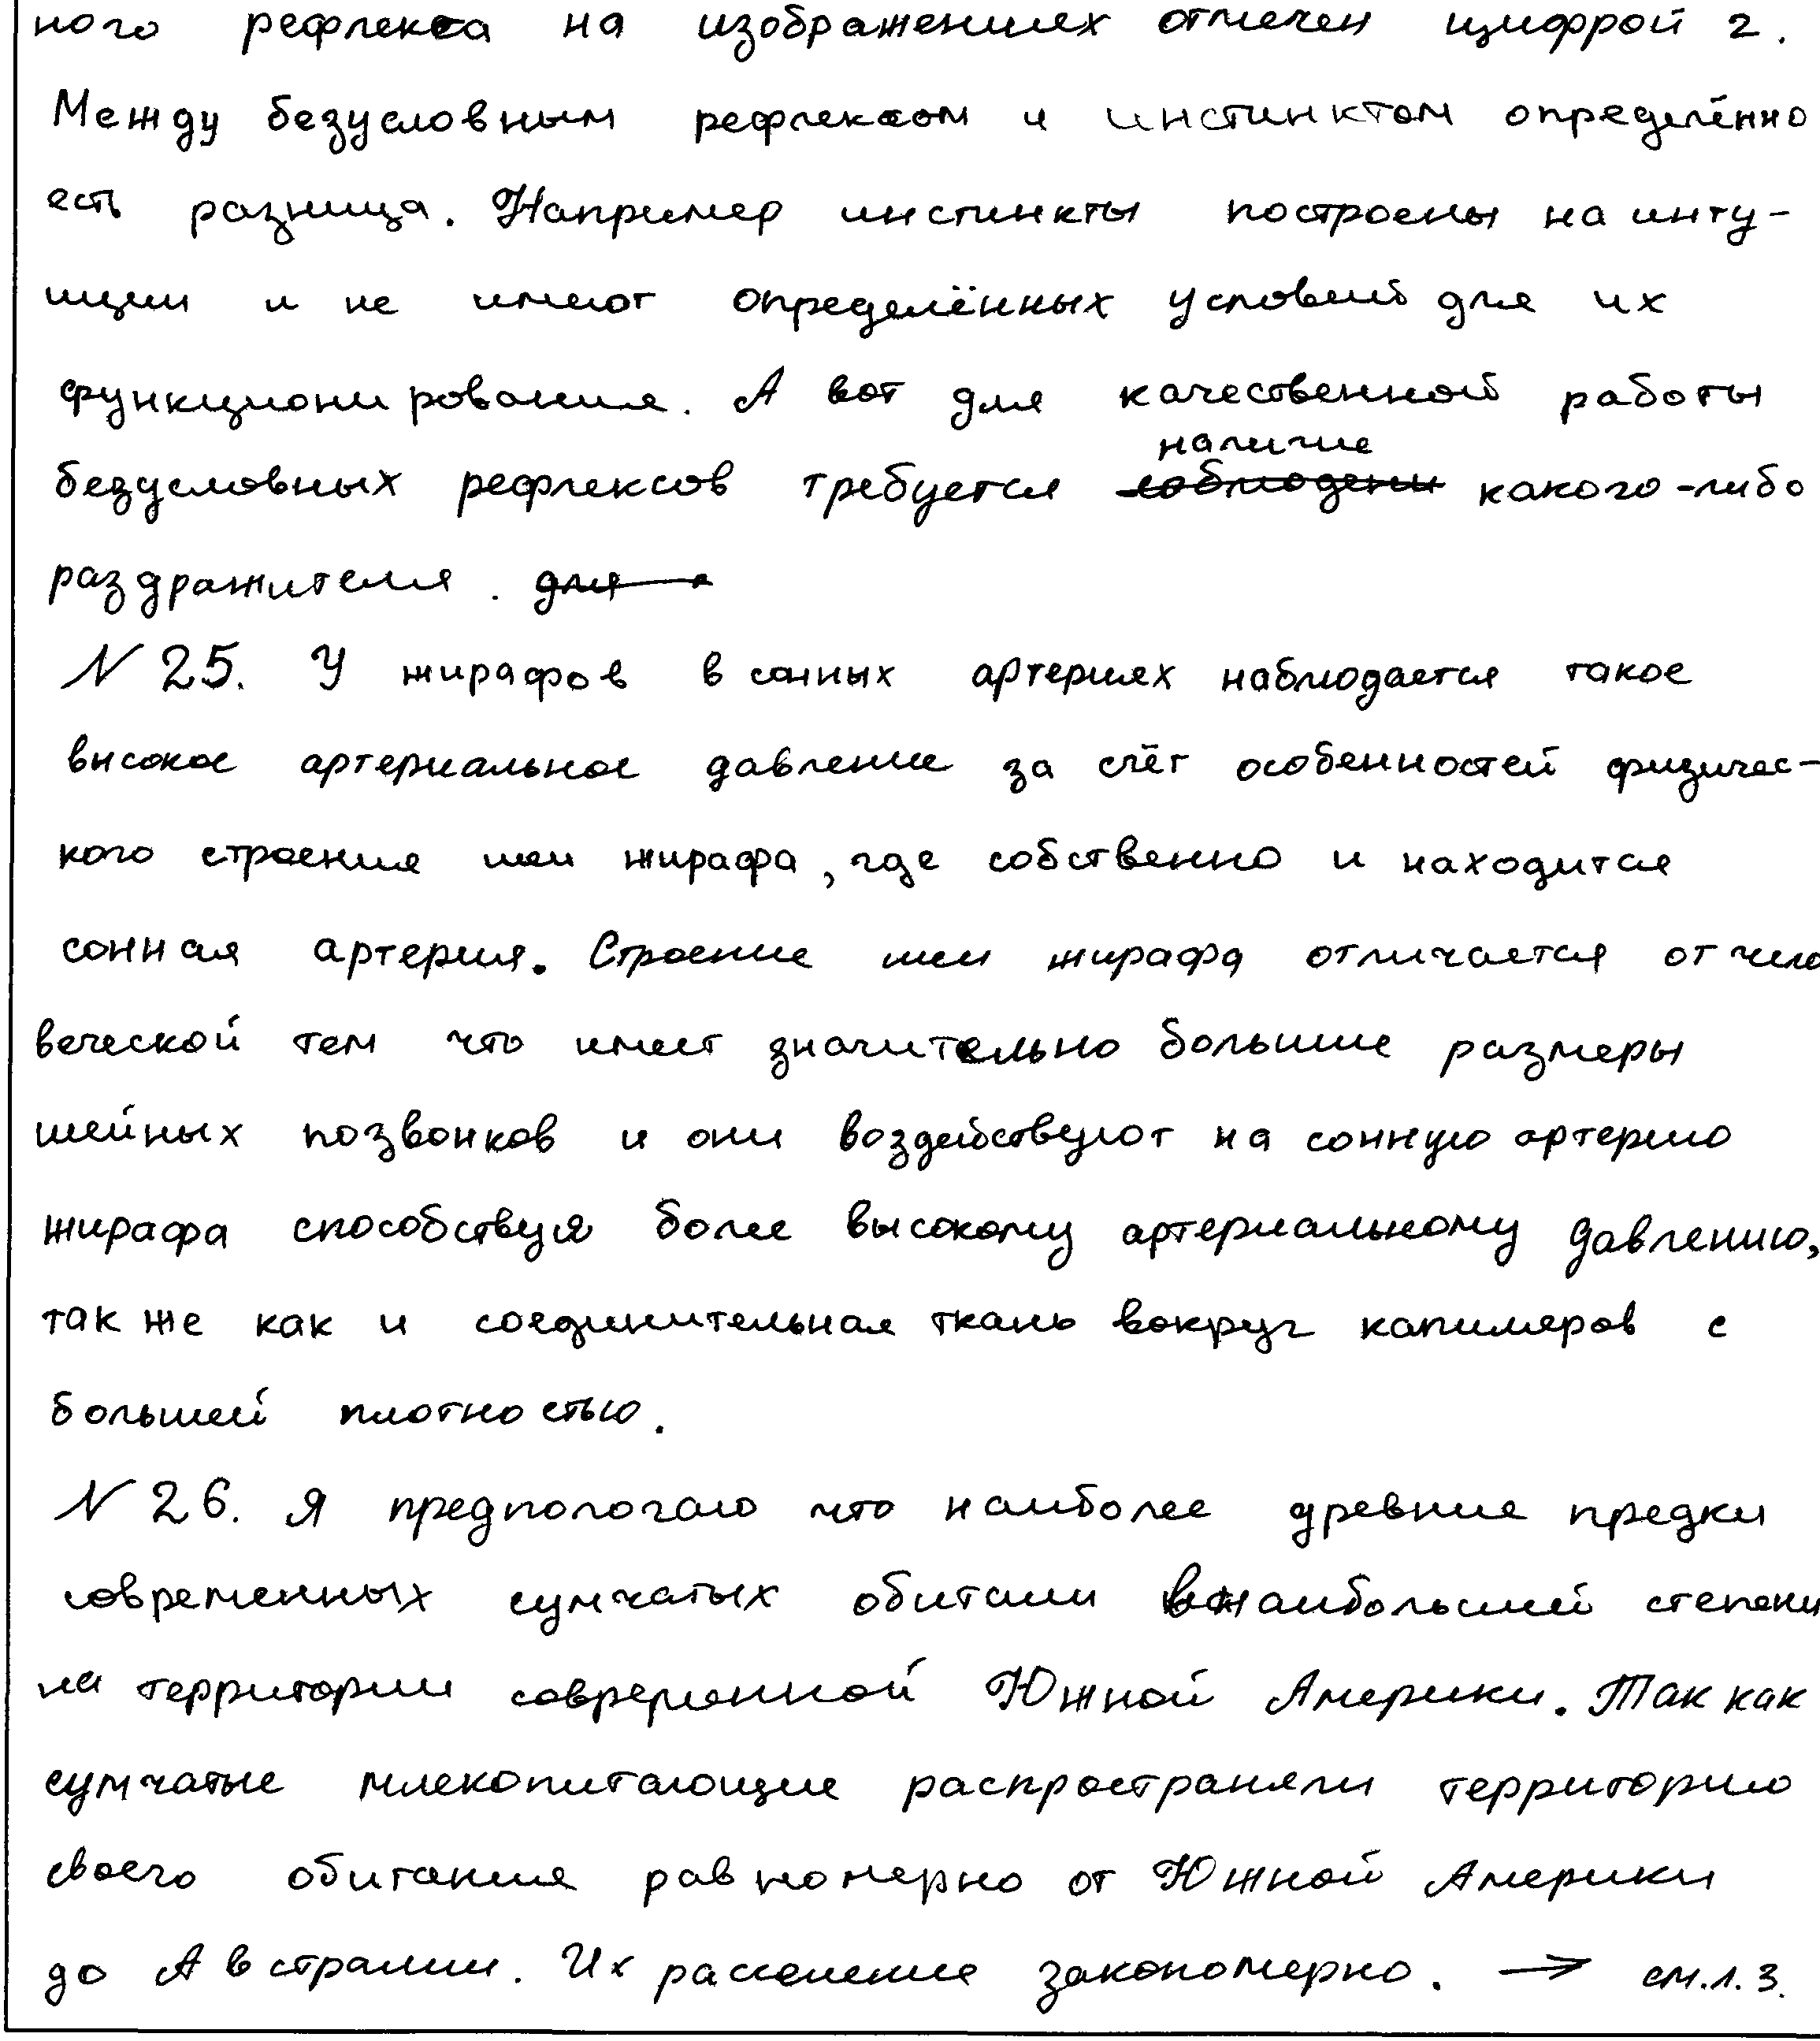 ного рефлекса на изображениях отмечен цифрой 2.
Между безусловным рефлексом и инстинктом определённо
есть разница. Например инстинкты построены на инту-
иции и не имеют определённых условий для их
функционирования. А вот для качественной работы
наличие
безусловных рефлексов требуется соблюдени какого-либо
раздражителя. для
N 25. У жирафов в сонных артериях наблюдается такое
высокое артериальное давление за счёт особенностей физичес-
кого строения шеи жирафа, где собственно и находится
сонная артерия. Строение шеи жирафа отличается от чело
веческой тем что имеет значительно большие размеры
шейных позвонков и они воздействуют на сонную артерию
жирафа способствуя более высокому артериальному давлению,
так же как и соединительная ткань вокруг капиляров с
большей плотностью.
N 26. Я предпологаю что наиболее древние предки
современных сумчатых обитали в наибольшей степени
на территории современной Южной Америки. Так как
сумчатые млекопитающие распространяли территорию
своего обитания равномерно от Южной Америки
до Австралии. Их расселение закономерно. → см.л.3.